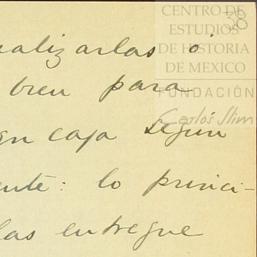 CENTRO DE
ESTUDIOS
DE HISTORIA
DE MEXICO
FUNDACIÓN
Carlos Slim
38
alizarlas o
bien para
en caja segun
ente: lo princi-
las entregue